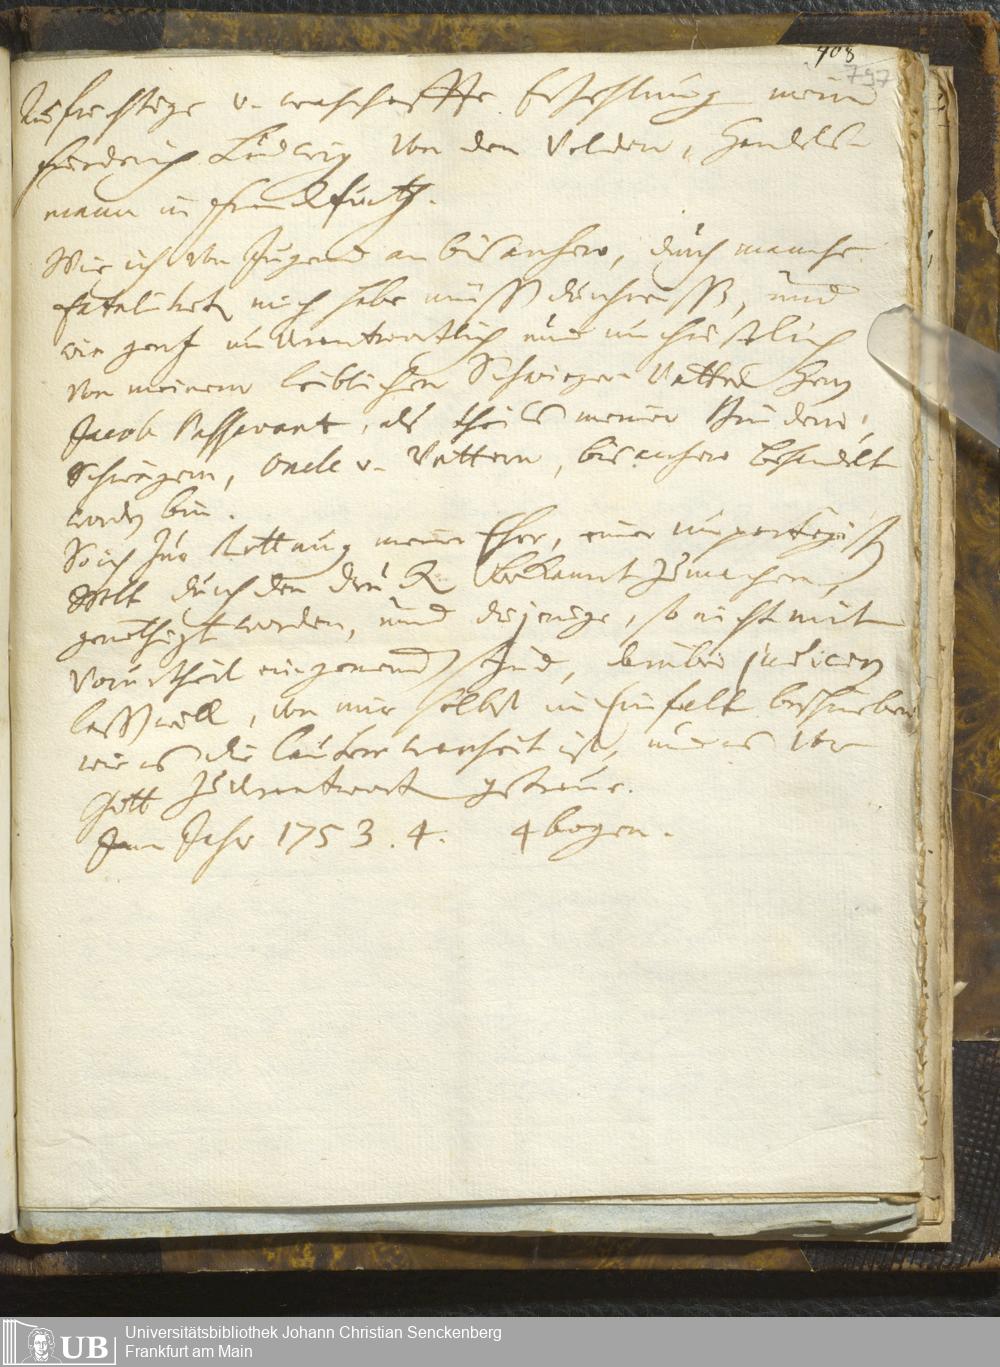 408
797
Aufrichtige v. wahrhaffte Erzehlung mein
Friedrich Ludwig von den Velden, Handels-
mann in Franckfurth.
Wie ich von Jugend an bis anhero, durch manche
fatalitaet mich habe müssen, und
wie gantz unverantwortlich und unchristlich
von meinem leiblichen Schwieger Vatter Herrn
Jacob Passavant, als theils meiner Brüdern,
Schwägern, Oncle v. Vettern, bis anhero behandelt
worden bin.
So ich zur Rettung meiner Ehre, einer unpartheyisch
Welt durch den Druck bekannt zu machen,
genöthigt worden, und diejenige, so nicht mit
Vorurtheil eingenommen sind, darüber judiciren
lassen will, von mir selbst in Einfalt beschrieben
wie es die lautere warheit ist, und es vor
Gott zu verantworten getraue.
Im Jahr 1753.4. 4 bogen.
UB
Universitätsbibliothek Johann Christian Senckenberg
Frankfurt am Main